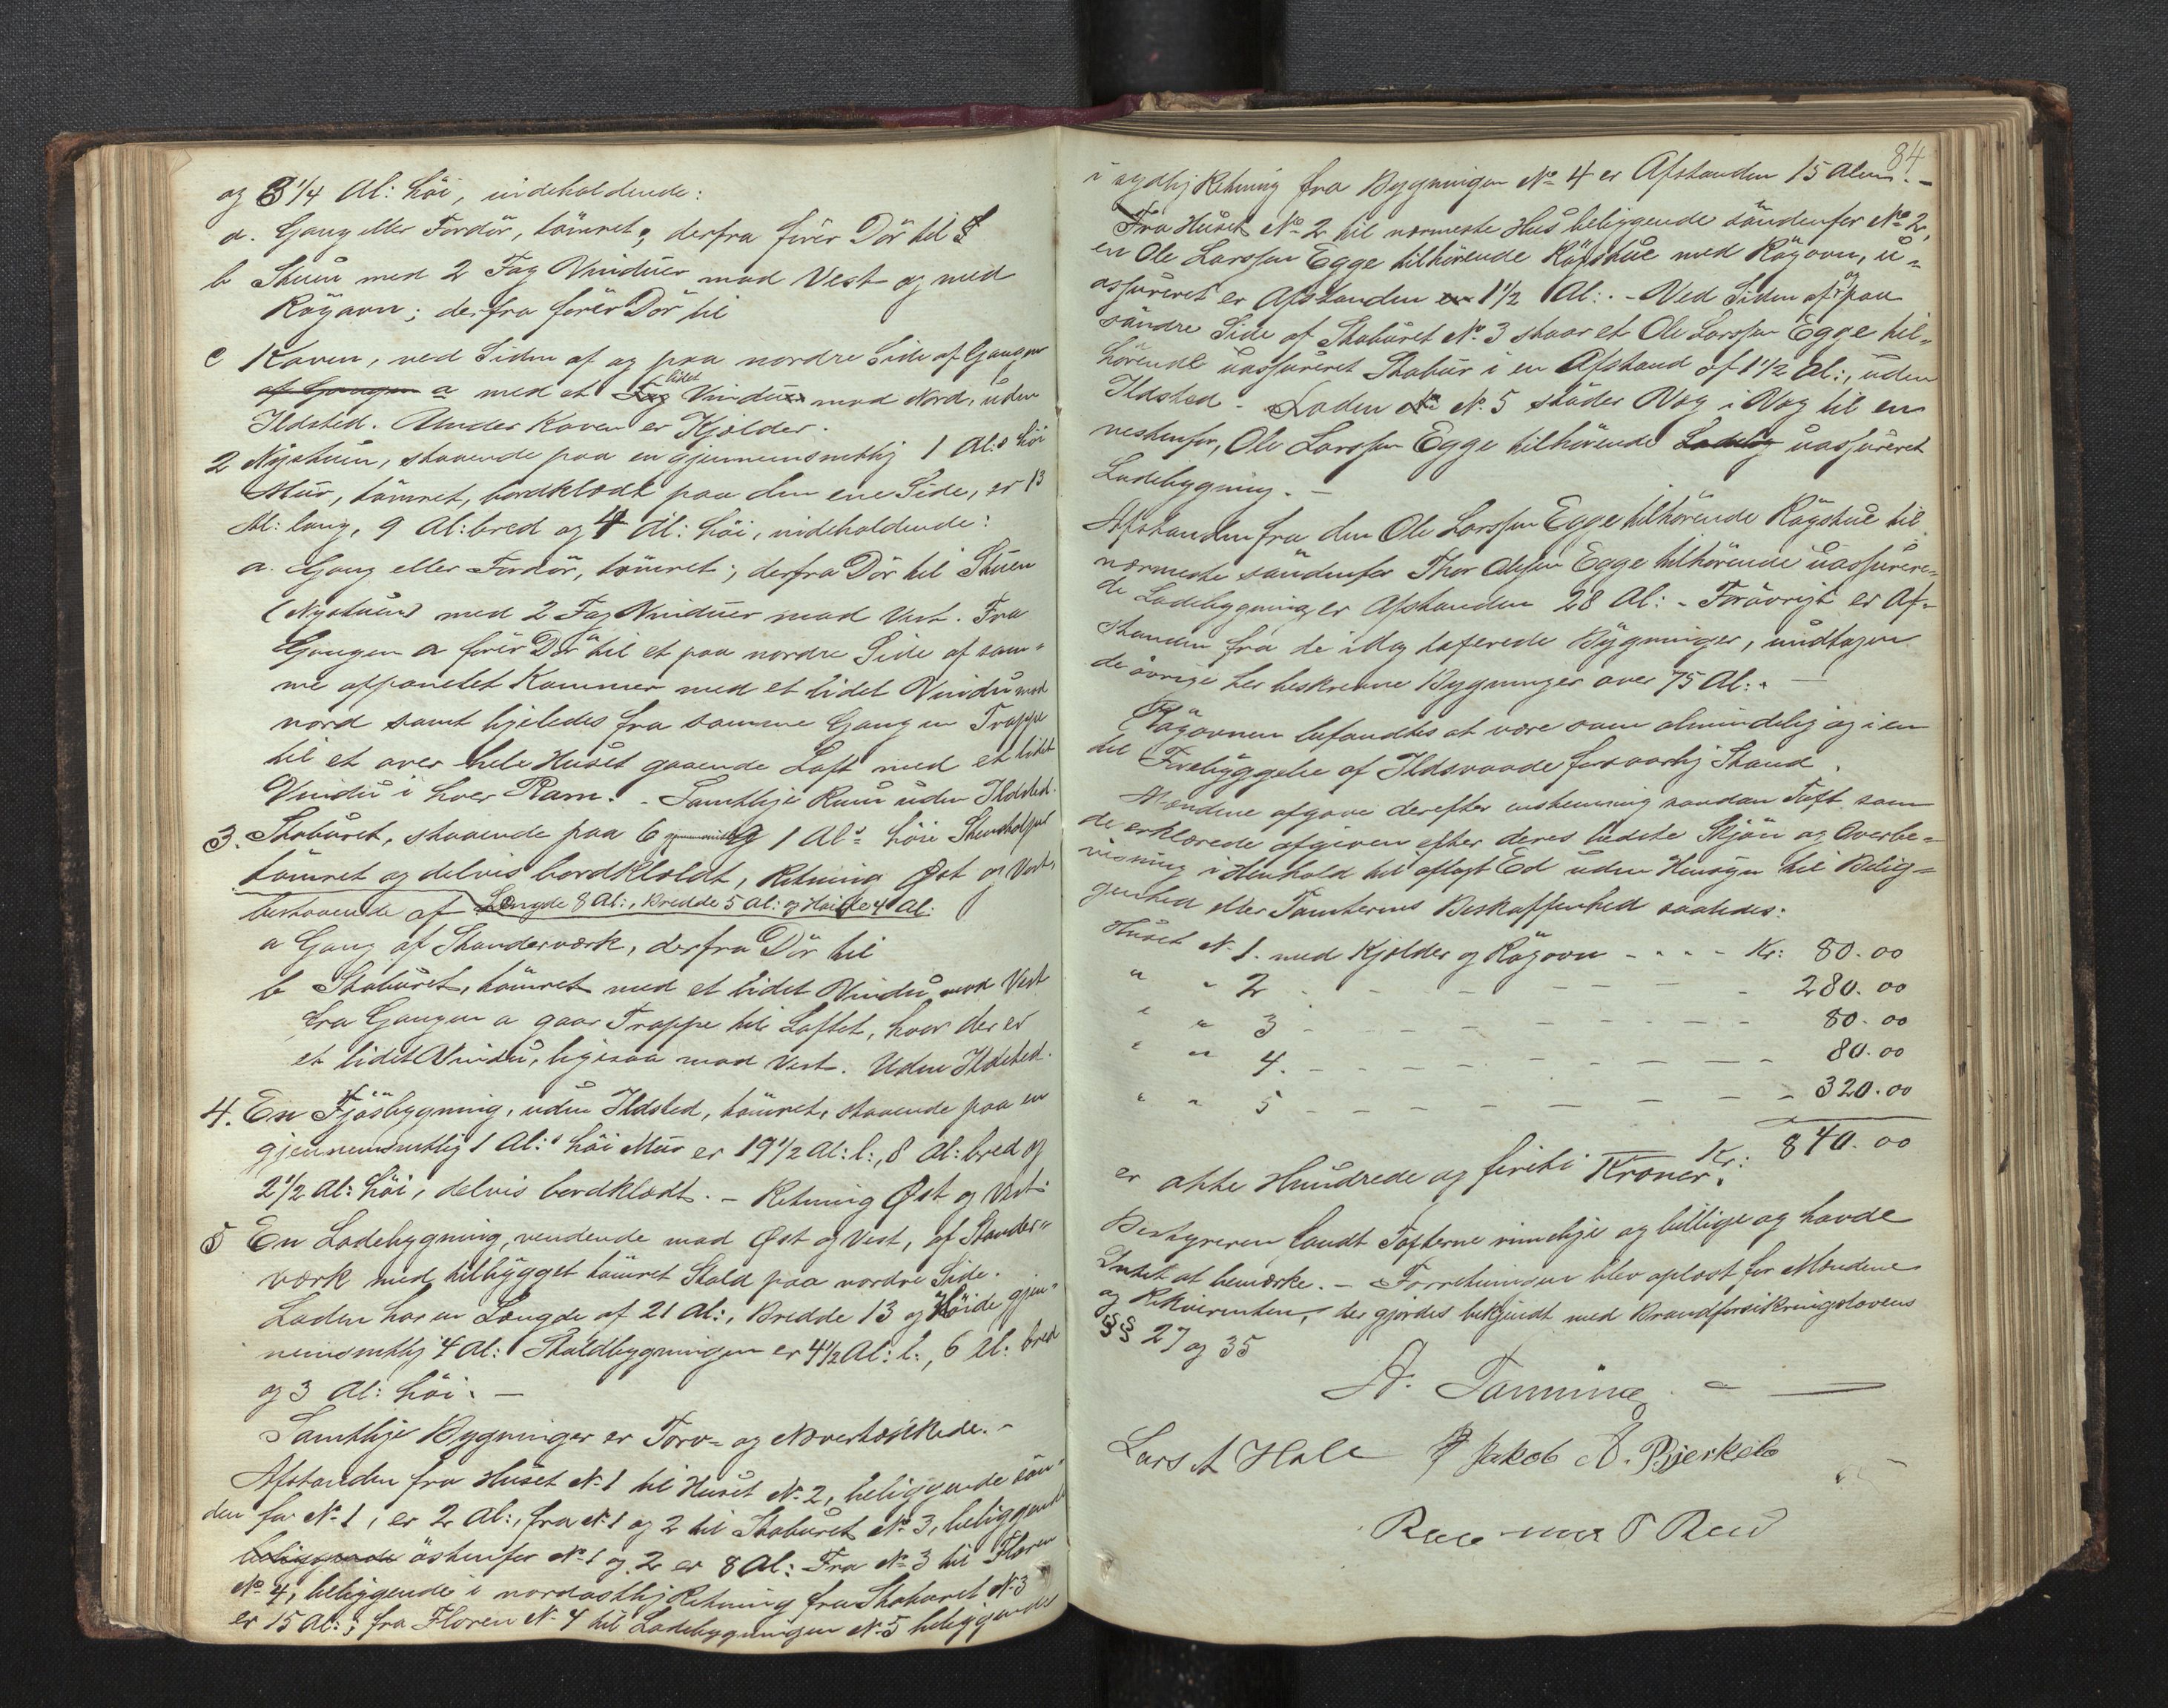 og 3 1/4 Al: höi, indeholdende:
a. Gang eller Fordör, tömret; derfra förer Dör til
b Stuen med 2 Fag Vinduer mod Vest og med
Rögovn; derfra förer Dör til
c Koven, ved Siden af og paa nordre Side af Gangen
af Gangen a med et lidet Fag Vindu mod Nord, uden
Ildsted. Under Koven er Kjelder.
2 Nystuen, staaende paa en gjennemsnitlig 1 Al:s höi
Mur, tömret, bordklædt paa den ene Side, er 13
Al: lang, 9 Al: bred og 4 Al: höi, indeholdende:
a. Gang eller Fordör, tömret; derfra Dör til Stuen
(Nystuen) med 2 Fag Vinduer mod Vest. Fra
Gangen a förer Dör til et paa nordre Side af sam-
me afpanelet Kammer med et lidet Vindu mod
nord samt ligeledes fra samme Gang en Trappe
til et over hele Huset gaaende Loft med et lidet
Vindu i hver Ram. - Samtlige Rum uden Ildsted.
3. Staburet, staaende paa 6 1 Al:s höie Stenstolper
tömret og delvis bordklædt, Retning Øst og Vest,
bestaaende af Længde 8 Al:, Bredde 5 Al: og Höide 4 Al:
a Gang af Standerværk, derfra Dör til
b Staburet, tömret med et lidet Vindu mod Vest
fra Gangen a gaar Trappe til Loftet, hvor der er
et lidet Vindu, ligesaa mod Vest. Uden Ildsted.
4. En Fjösbygning, uden Ildsted, tömret, staaende paa en
gjennemsnitlig 1 Al:s höi Mur er 19 1/2 Al: l:, 8 Al: bred og
2 1/2 Al: höi, delvis bordklædt. - Retning Øst og Vest.
5 En Ladebygning, vendende mod Øst og Vest, af Stander-
værk med tilbygget tömret Stald paa nordre Side.
Laden har en Længde af 21 Al:, Bredde 13 og Höide gjen-
nemsnitlig 4 Al: Staldbygningen er 4 1/2 Al: l:, 6 Al: bred
og 3 Al: höi. -
Samtlige Bygninger er Torv- og Nævertækkede. -
Afstanden fra Huset No 1 til Huset No 2, beliggende sön-
den for No 1, er 2 Al:, fra No 1 og 2 til Staburet No 3, beliggende
beliggende östenfor No 1 og 2 er 8 Al: Fra No 3 til Floren
No 4, beliggende i nordostlig Retning fra Staburet No 3
er 15 Al:; fra Floren No 4 til Ladebygningen No 5 beliggende
84
i sydlig Retning fra Bygningen No 4 er Afstanden 15 Alen. -
Fra Huset No 2 til nærmeste Hus beliggende söndenfor No 2,
en Ole Larssen Egge tilhörende Rögstue med Rögovn, u-
assureret er Afstanden er 1 1/2 Al:. - Ved Siden af og paa
söndre Side af Staburet No 3 staar et Ole Larssen Egge til-
hörende uassureret Stabur i en Afstand af 1 1/2 Al:, uden
Ildsted. - Laden No 5 støder Væg i Væg til en
vestenfor, Ole Larssen Egge tilhörende uassureret
Ladebygning. -
Afstanden fra den Ole Larssen Egge tilhörende Rögstue til
nærmeste söndenfor Thor Olsen Egge tilhörende uassurere-
de Ladebygning er Afstanden 28 Al: - Forövrigt er Af-
standen fra de idag taxerede Bygninger, undtagen
de övrige her beskrevne Bygninger over 75 Al:. -
Rögovnen befandtes at være som almindelig og i en
til Forebyggelse af Ildsvaade forsvarlig Stand.
Mændene afgave derefter enstemmig saadan Taxt som
de erklærede afgiven efter deres bedste Skjön og Overbe-
visning i Henhold til aflagt Ed uden Hensyn til Belig-
genhed eller Tomternes Beskaffenhed saaledes:
Huset No 1. med Kjelder og Rögovn - - - - Kr: 80.00
" " 2 - - - - - - - 280.00
" " 3 - - - - - - - 80.00
" " 4. - - - - - - - 80.00
" " 5 - - - - - - - 320.00
Kr: 840.00
er otte Hundrede og firети Kroner.
Bestyreren fandt Taxterne rimelige og billige og havde
Intet at bemærke. - Forretningen blev oplæst for Mændene
og Rekvirenten, der gjordes bekjendt med Brandforsikringslovens
§§ 27 og 35
A. Tamming -
Lars A Hole Jakob A. Bjerkeb